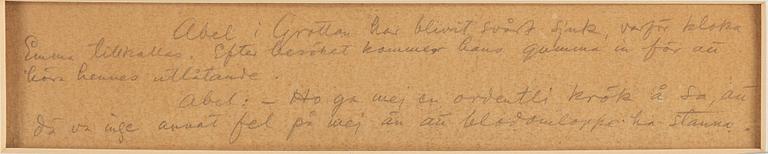 Abel i Grottan har blivit svårt sjuk, varför kloka
Emma tillkallas. Efter besöket kommer hans gumma in för att
höra hennes utlåtande.
Abel: – Ho ga mej en ordentli krök å sa, att
då va inge annat fel på mej än att blodomloppe ha stanna.